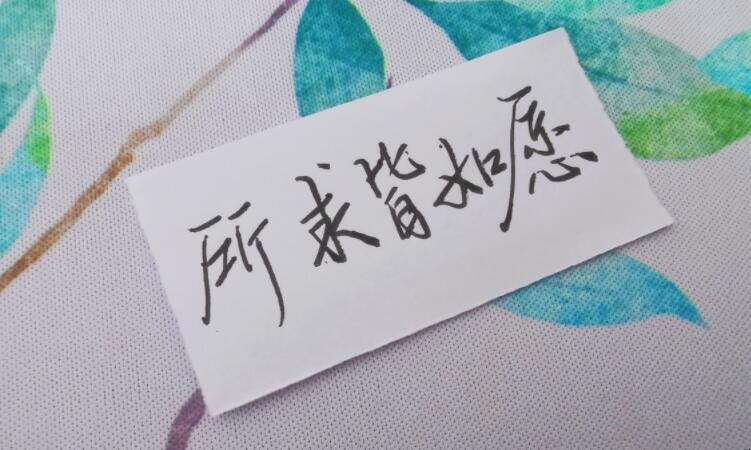 所求皆如愿